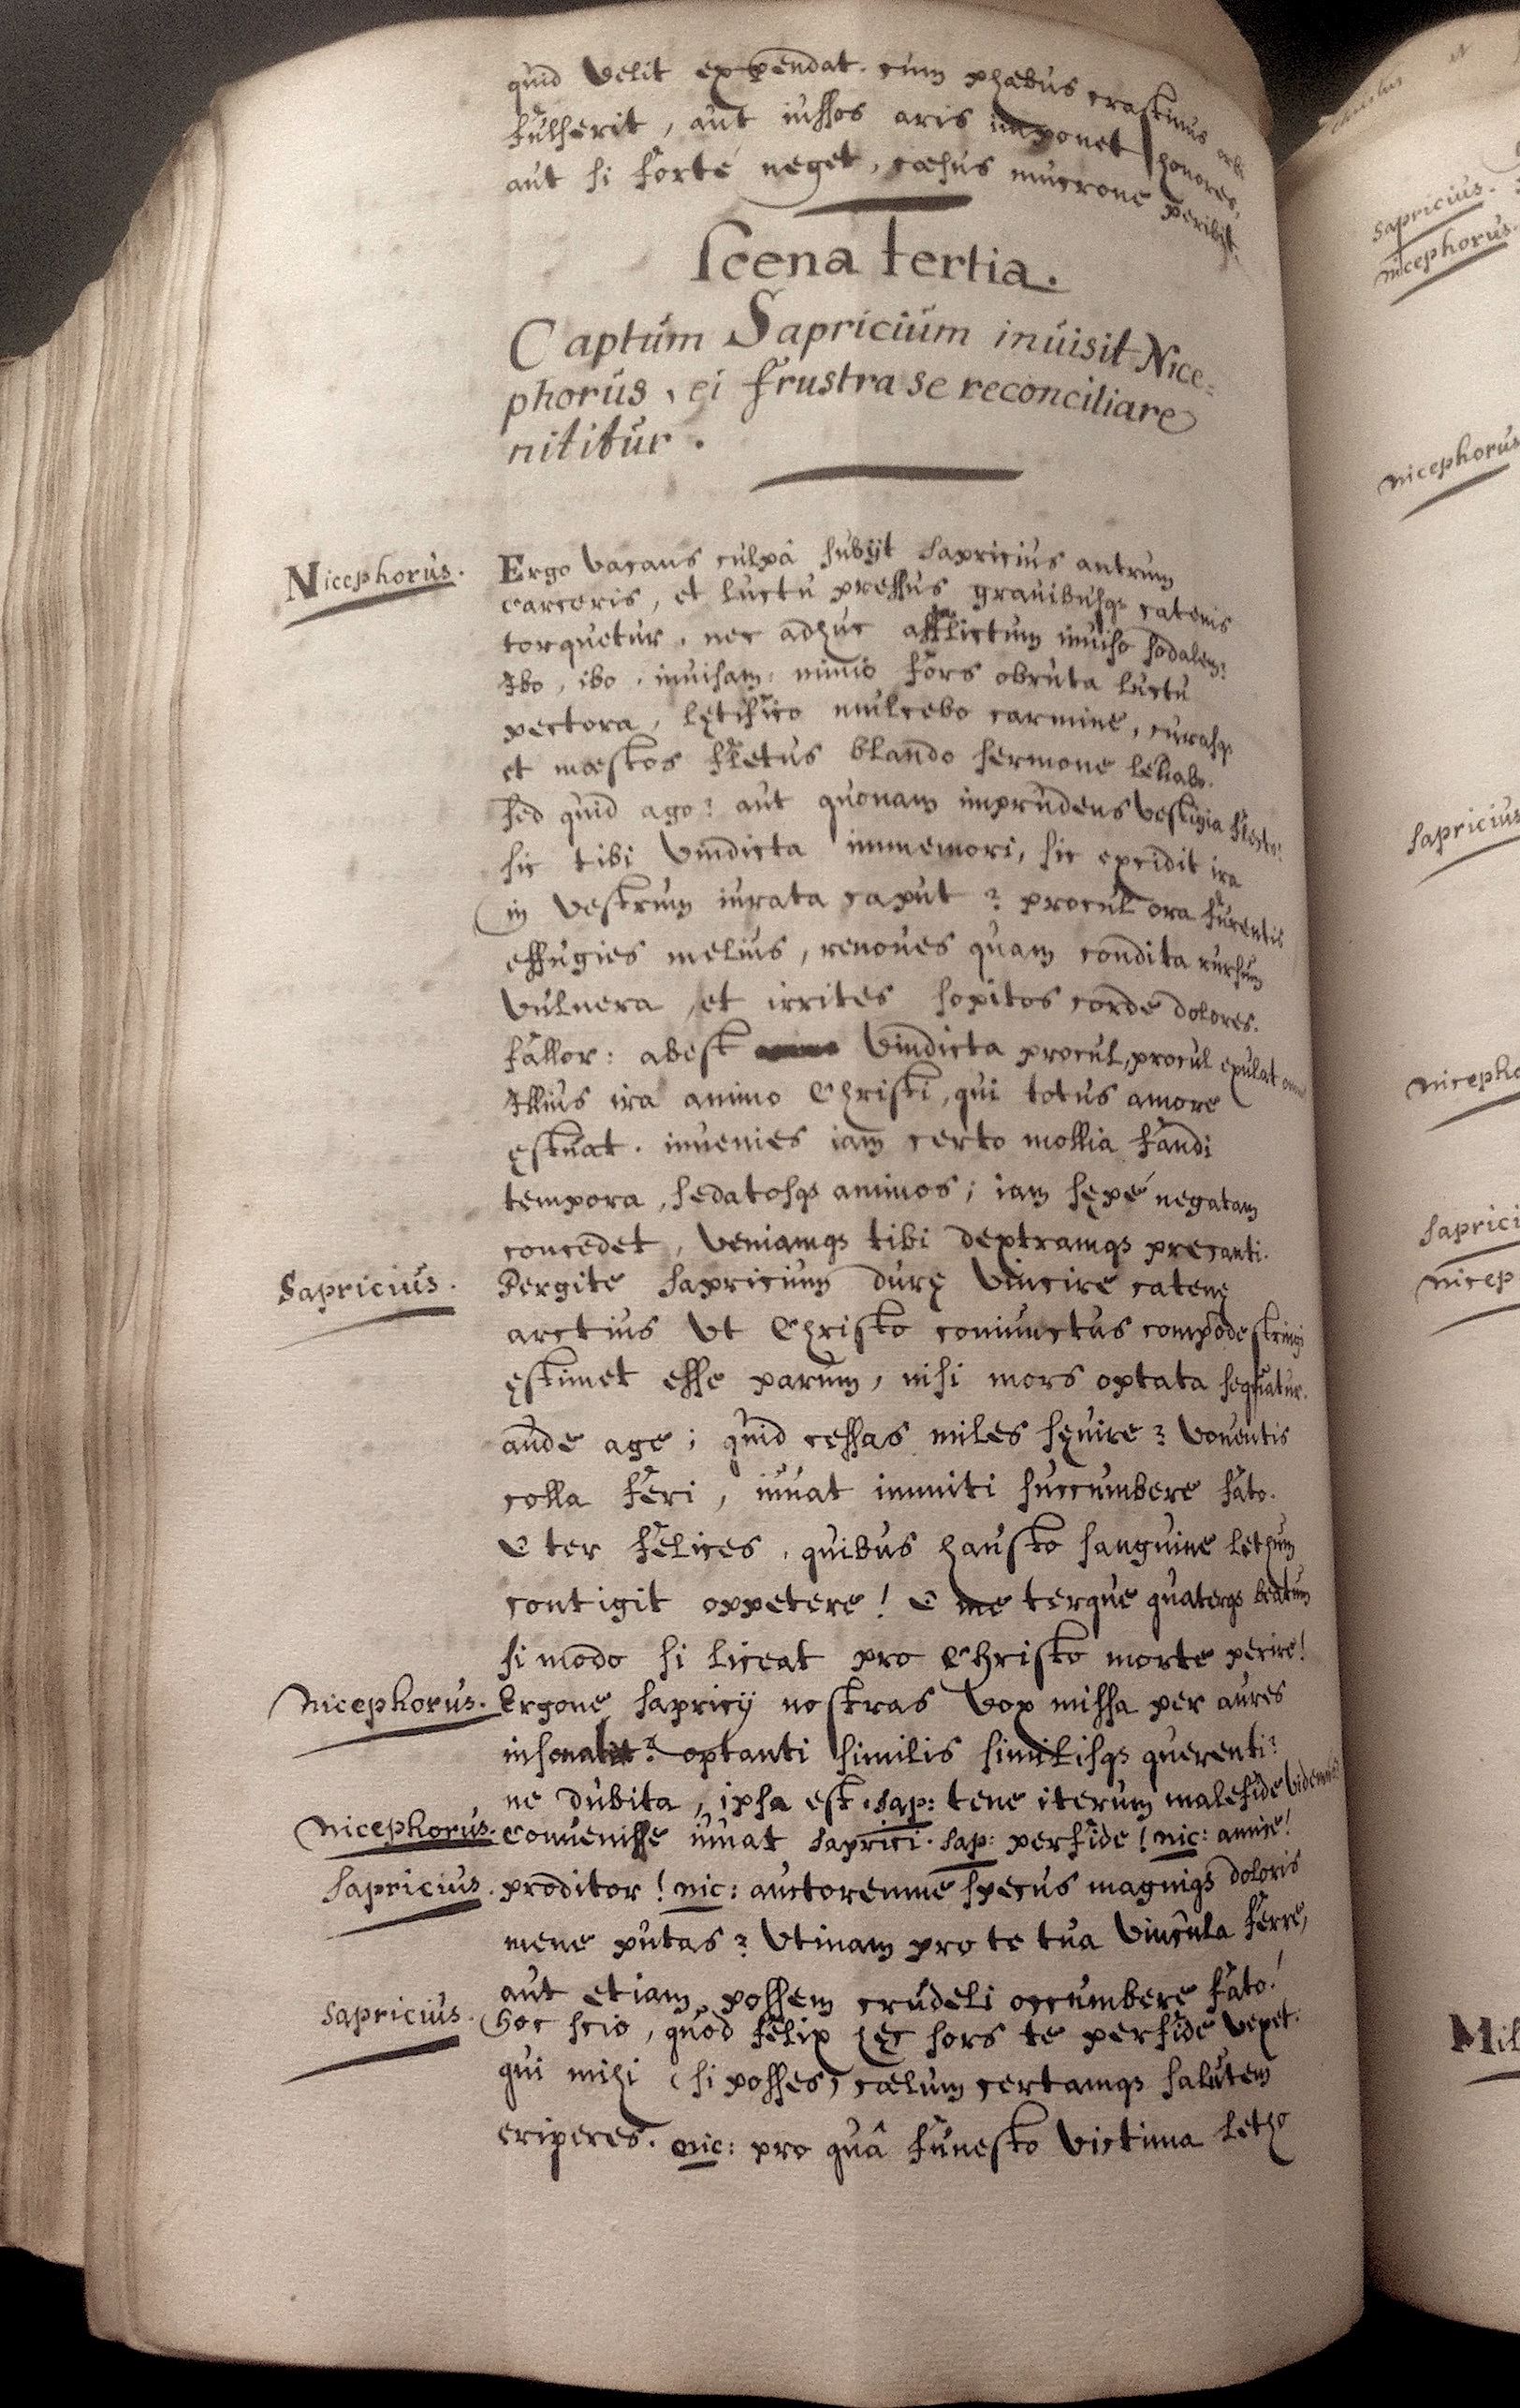 quid velit expendat. cum phæbus crastinus orbi
fulserit, aut iussos aris imponet honores,
aut si forte neget, cæsus mucrone peribit.
Scena tertia.
Captum Sapricium inuisit Nice=
phorus, ei frustra se reconciliare
nititur.
Nicephorus. Ergo vacans culpâ subijt Sapricius antrum
carceris, et luctu pressus grauibusqȝ catenis
torquetur, nec adhuc afflictum inuiso sodalem?
Ibo, ibo, inuisam: nimio fors obruta luctu
pectora, lętifico mulcebo carmine, curasqȝ
et mæstos fletus blando sermone leuabo.
sed quid ago? aut quonam imprudens vestigia flecto?
sic tibi vindicta immemori, sic excidit ira
in vestrum iurata caput? procul ora furentis
effugies melius, renoues quam condita rursum
vulnera, et irrites sopitos corde dolores.
fallor: abest vindicta procul, procul exulat
Illius ira animo Christi, qui totus amore
ęstuat. inuenies iam certo mollia fandi
tempora, sedatosqȝ animos; iam sępe negatam
concedet, veniamqȝ tibi dextramqȝ precanti.
Sapricius. Pergite Sapricium durę vincire catenę
arctius vt Christo coniunctus compode stringi
ęstimet esse parum, nisi mors optata sequatur.
aude age; quid cessas miles sęuire? vouentis
colla feri, iuuat immiti succumbere fato.
O ter felices, quibus hausto sanguine lethum
contigit oppetere! O me terque quaterqȝ beatum
si modo si liceat pro Christo morte perire!
Nicephorus. Ergone Sapricij nostras vox missa per aures
insonat? optanti similis similisqȝ querenti?
ne dubita, ipsa est. Sap: tene iterum malefide videmus?
Nicephorus. Conuenisse iuuat Saprici. Sap: perfide! nic: amice!
Sapricius. proditor! nic: auctoremne specus magniqȝ doloris
mene putas? vtinam pro te tua vincula ferre,
aut etiam possem crudeli occumbere fato!
Sapricius. Hoc scio, quod felix hęc sors te perfide vexet.
qui mihi (si posses) cælum certamqȝ salutem
eriperes. nic: pro quâ funesto victima letho
Sapricius.
nicephorus.
nicephorus
Sapricius